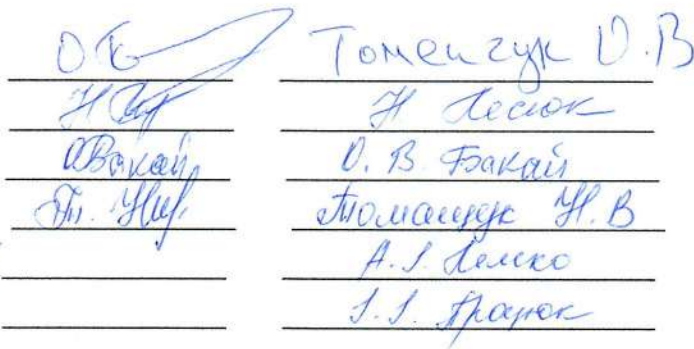 Томенчук О.В
Н Лесюк
ОБакай О. В. Бакай
Томащук Н. В
А. І. Лемко
І. І. Процюк